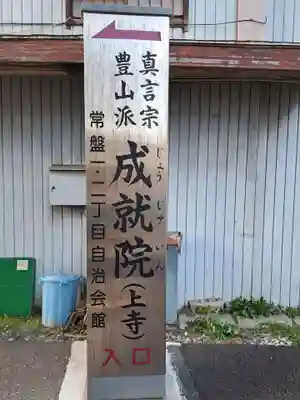 真言宗
豊山派
成就院(上寺)
じょうじゅいん
常盤一・二丁目自治会館
入口